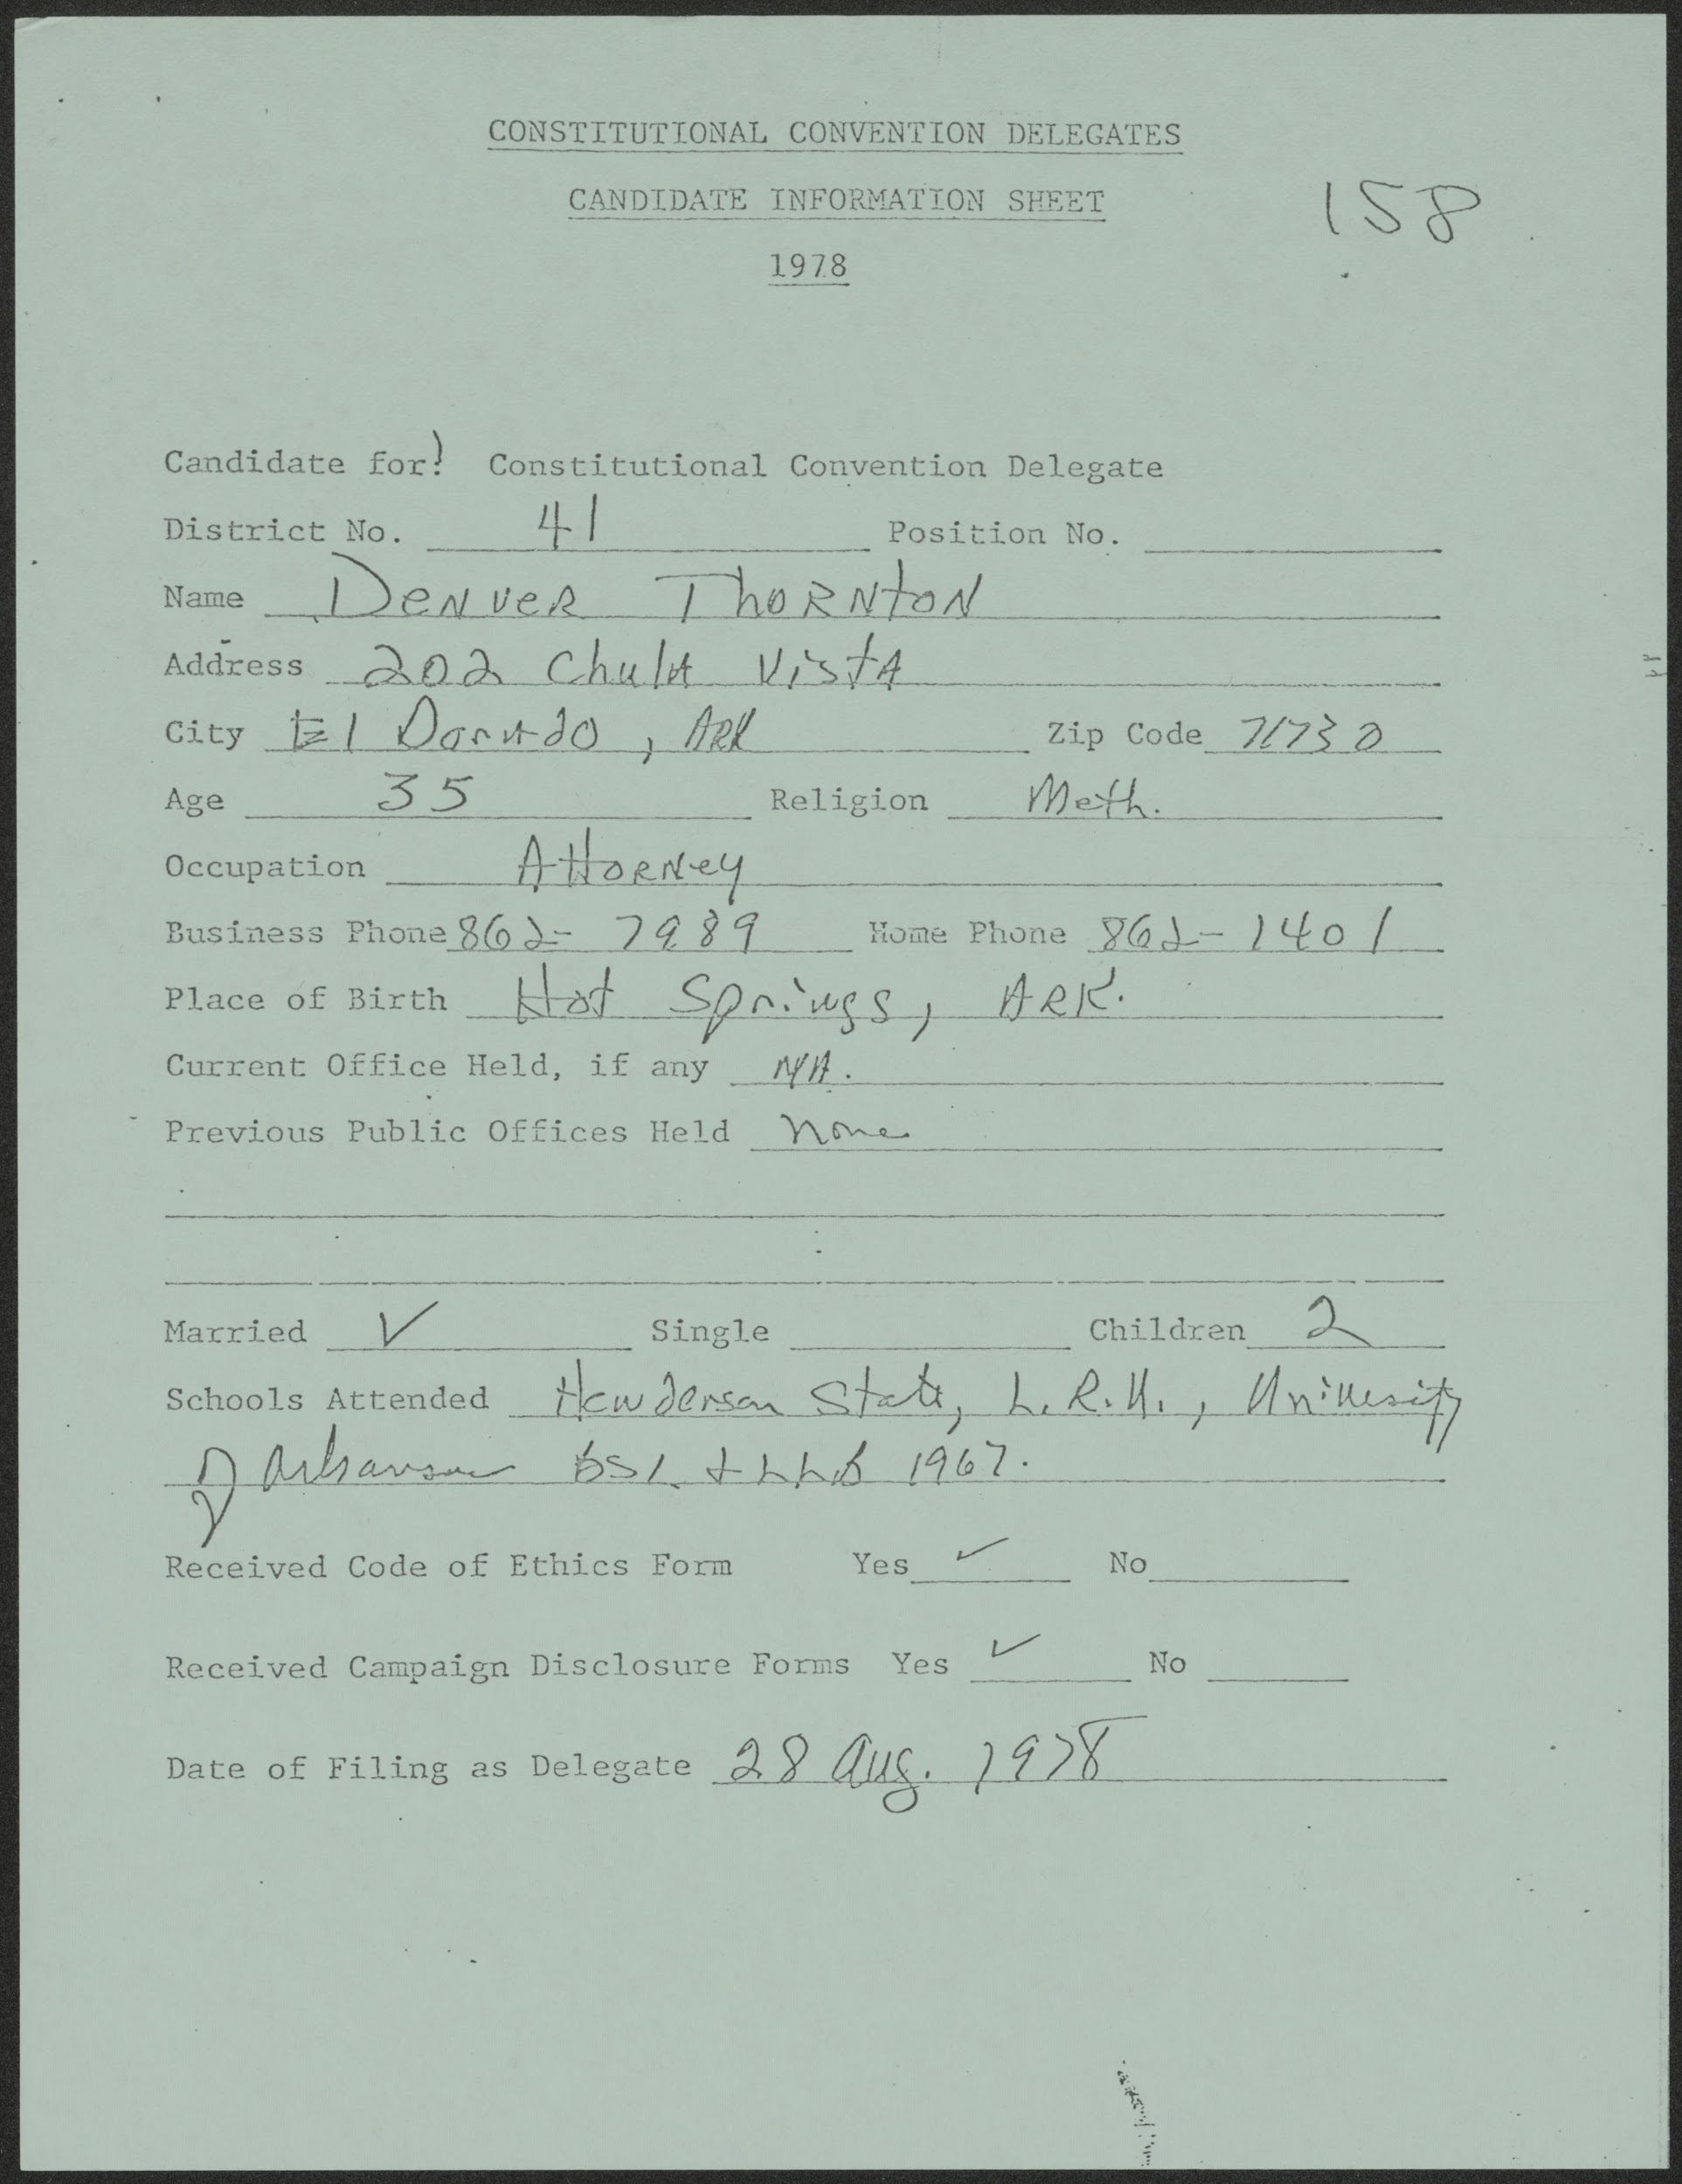 CONSTITUTIONAL CONVENTION DELEGATES
CANDIDATE INFORMATION SHEET
158
1978
Candidate for: Constitutional Convention Delegate
District No. 41 Position No.
Name DENVER THORNTON
Address 202 Chula Vista
City El Dorado, ARK Zip Code 71730
Age 35 Religion Meth.
Occupation Attorney
Business Phone 862-7989 Home Phone 862-1401
Place of Birth Hot Springs, ARK.
Current Office Held, if any N/A.
Previous Public Offices Held None
Married ✓ Single Children 2
Schools Attended Henderson State, L.R.U., University
of Arkansas BSL + LLB 1967.
Received Code of Ethics Form Yes ✓ No
Received Campaign Disclosure Forms Yes ✓ No
Date of Filing as Delegate 28 Aug. 1978